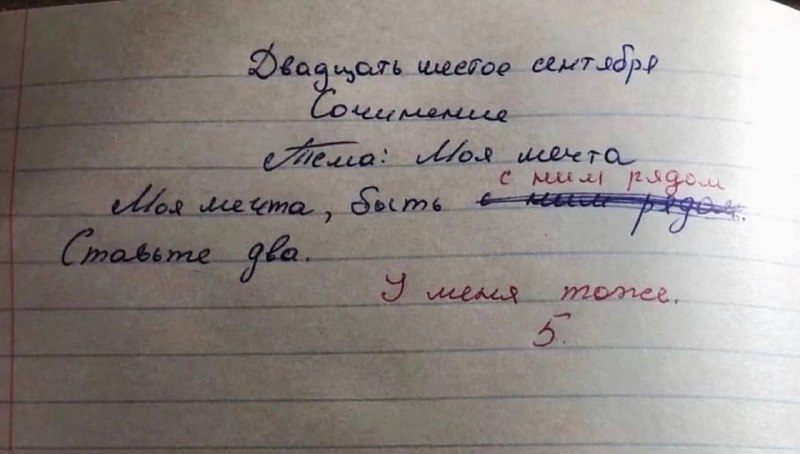 Двадцать шестое сентября
Сочинение
Тема: Моя мечта
с ним рядом
Моя мечта, быть с ним рядом.
Ставьте два.
У меня тоже.
5.